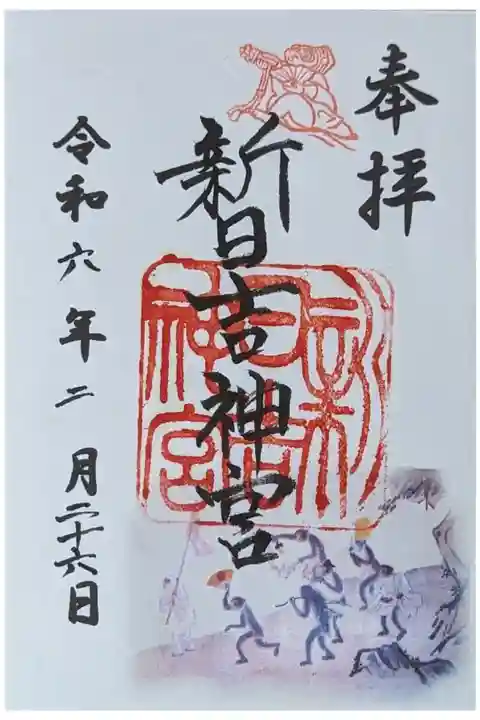 奉拝
新日吉神宮
新日吉神宮
令和六年二月二十六日